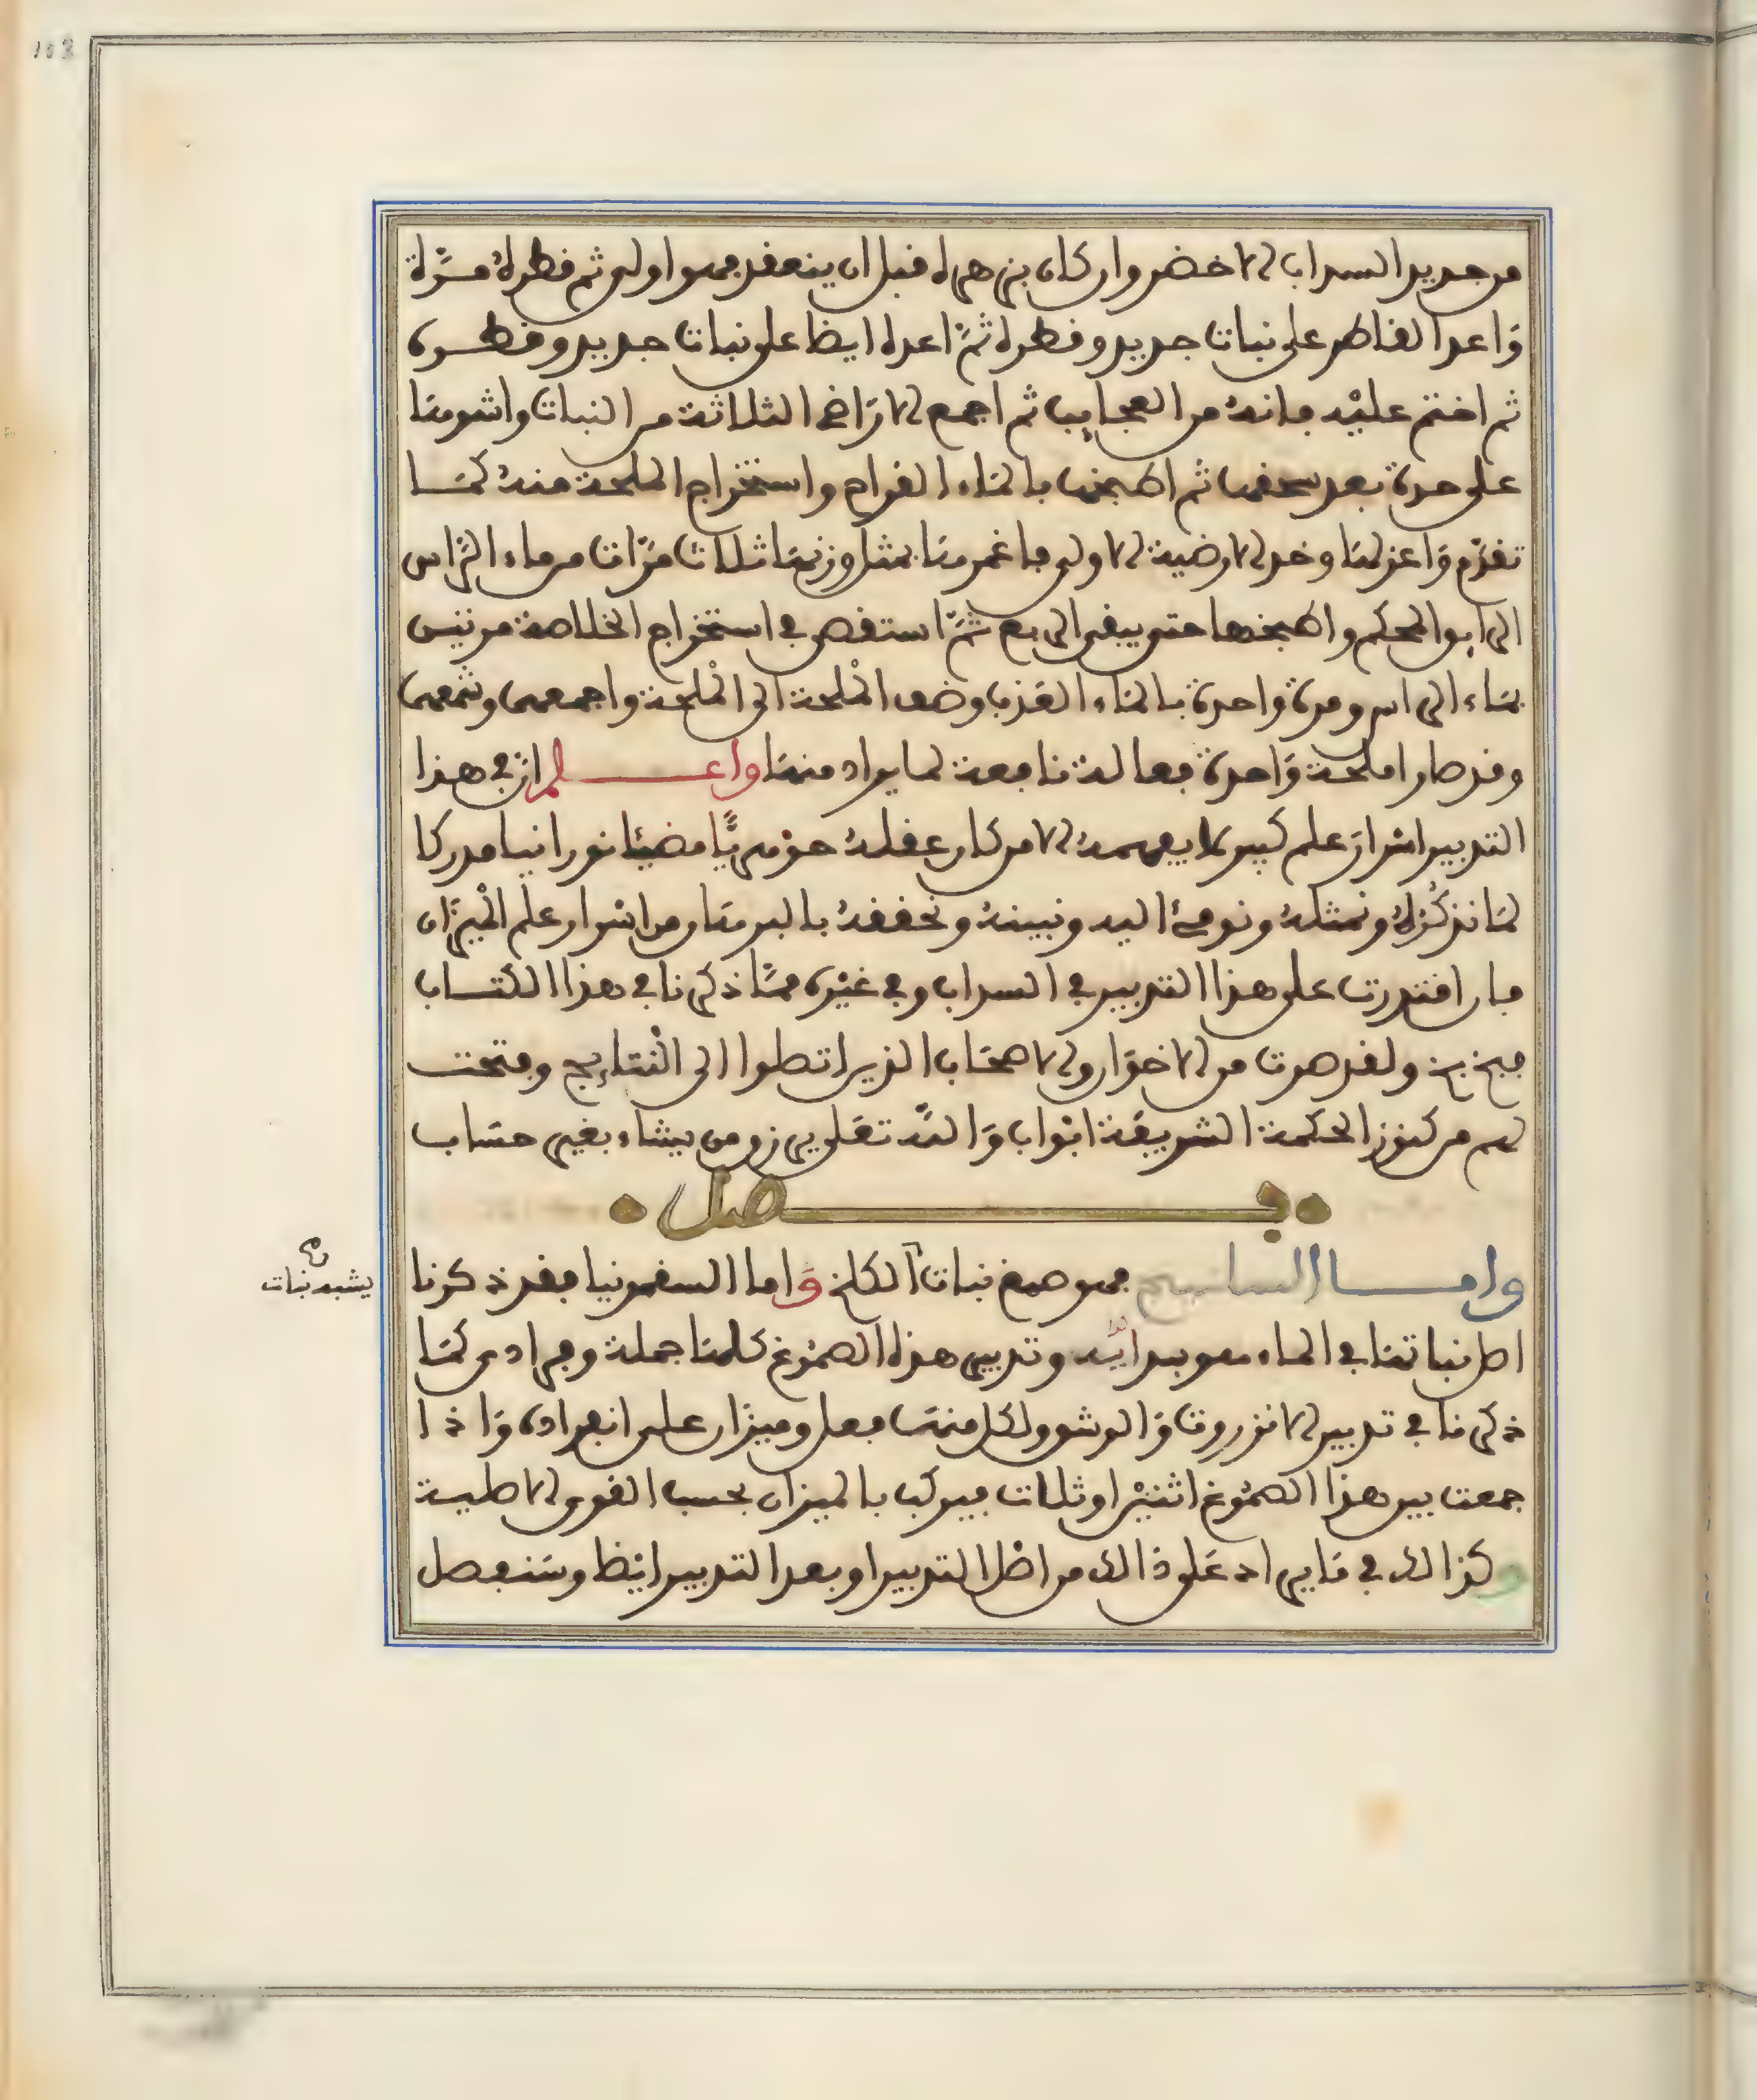 من جديد السداب الاخضر وان كان بزهره قبل ان ينعقد فهو اولى ثم قطره مرّة
وَاعد القاطر على نبات جديد وقطره ثمّ اعده ايضا على نبات جديد وقطره
ثم اختم عليْه فانه من العجايب ثم اجمع الارَاضي الثلاثة من النبات واشوها
على حدة بعد سحقها ثم اطبخها بالماء القراح واستخراج الملحة منه كما
تقدّم وَاعزلها وخذ الارضية الاولى فاغمرها بمثل وزنها ثلاث مَرّات من ماء الرّاس
الرايق المحكم واطبخها حتى يبقى الربع ثمّ استقص في استخراج الخلاصة مرتين
بماء الراس ومرة واحدة بالماء العذب وضف الْملحة الى الْملحة واجمعهما وشمعهما
وقد صارا ملحة وَاحدة فعالة نافعة لما يراد منها واعلم ان في هذا
التدبير اسْرارَ علم كبير لا يفهمه الا من كان عقله جوْهريًّا مضيئا نورانيا مدركا
لما نذكُرُهُ ونمثله ونومئ اليه ونبينه ونحققه بالبرهان من اسْرار علم الْميزَان
فان اقتدرت على هذا التدبير في السداب وفي غيْره ممّا ذكرنا في هذا الكتاب
فبخ بخ ولقد صرت من الاخوَان والاصحَاب الذين اتصلوا الى الْنتايج وفتحت
لهم من كنوز الحكمة الشريفَة ابْواب وَاللّه تعَلى يرزق من يشاء بغير حسَاب
فصل
واما الساسيج فهو صمغ نبات الكلخ وَاما السقمونيا فقد ذكرنا
يشبه نبات
اصل نباتها في الماء معوبيداته وتدبير هذه الصمُوغ كلها جملة وفرادى كما
ذكرنا في تدبير الانزروت وَالوشق ولكل منها فعل وميزان على انفراده وَاذا
جمعت بين هذا الصمُوغ اثنيْن او ثلاث فيركب بالميزان بحسب القوى الاصلية
وكذالك في مَا يراد عَلى ذالك من اصْل التدبير او بعد التدبير ايْضا وسَنفصل